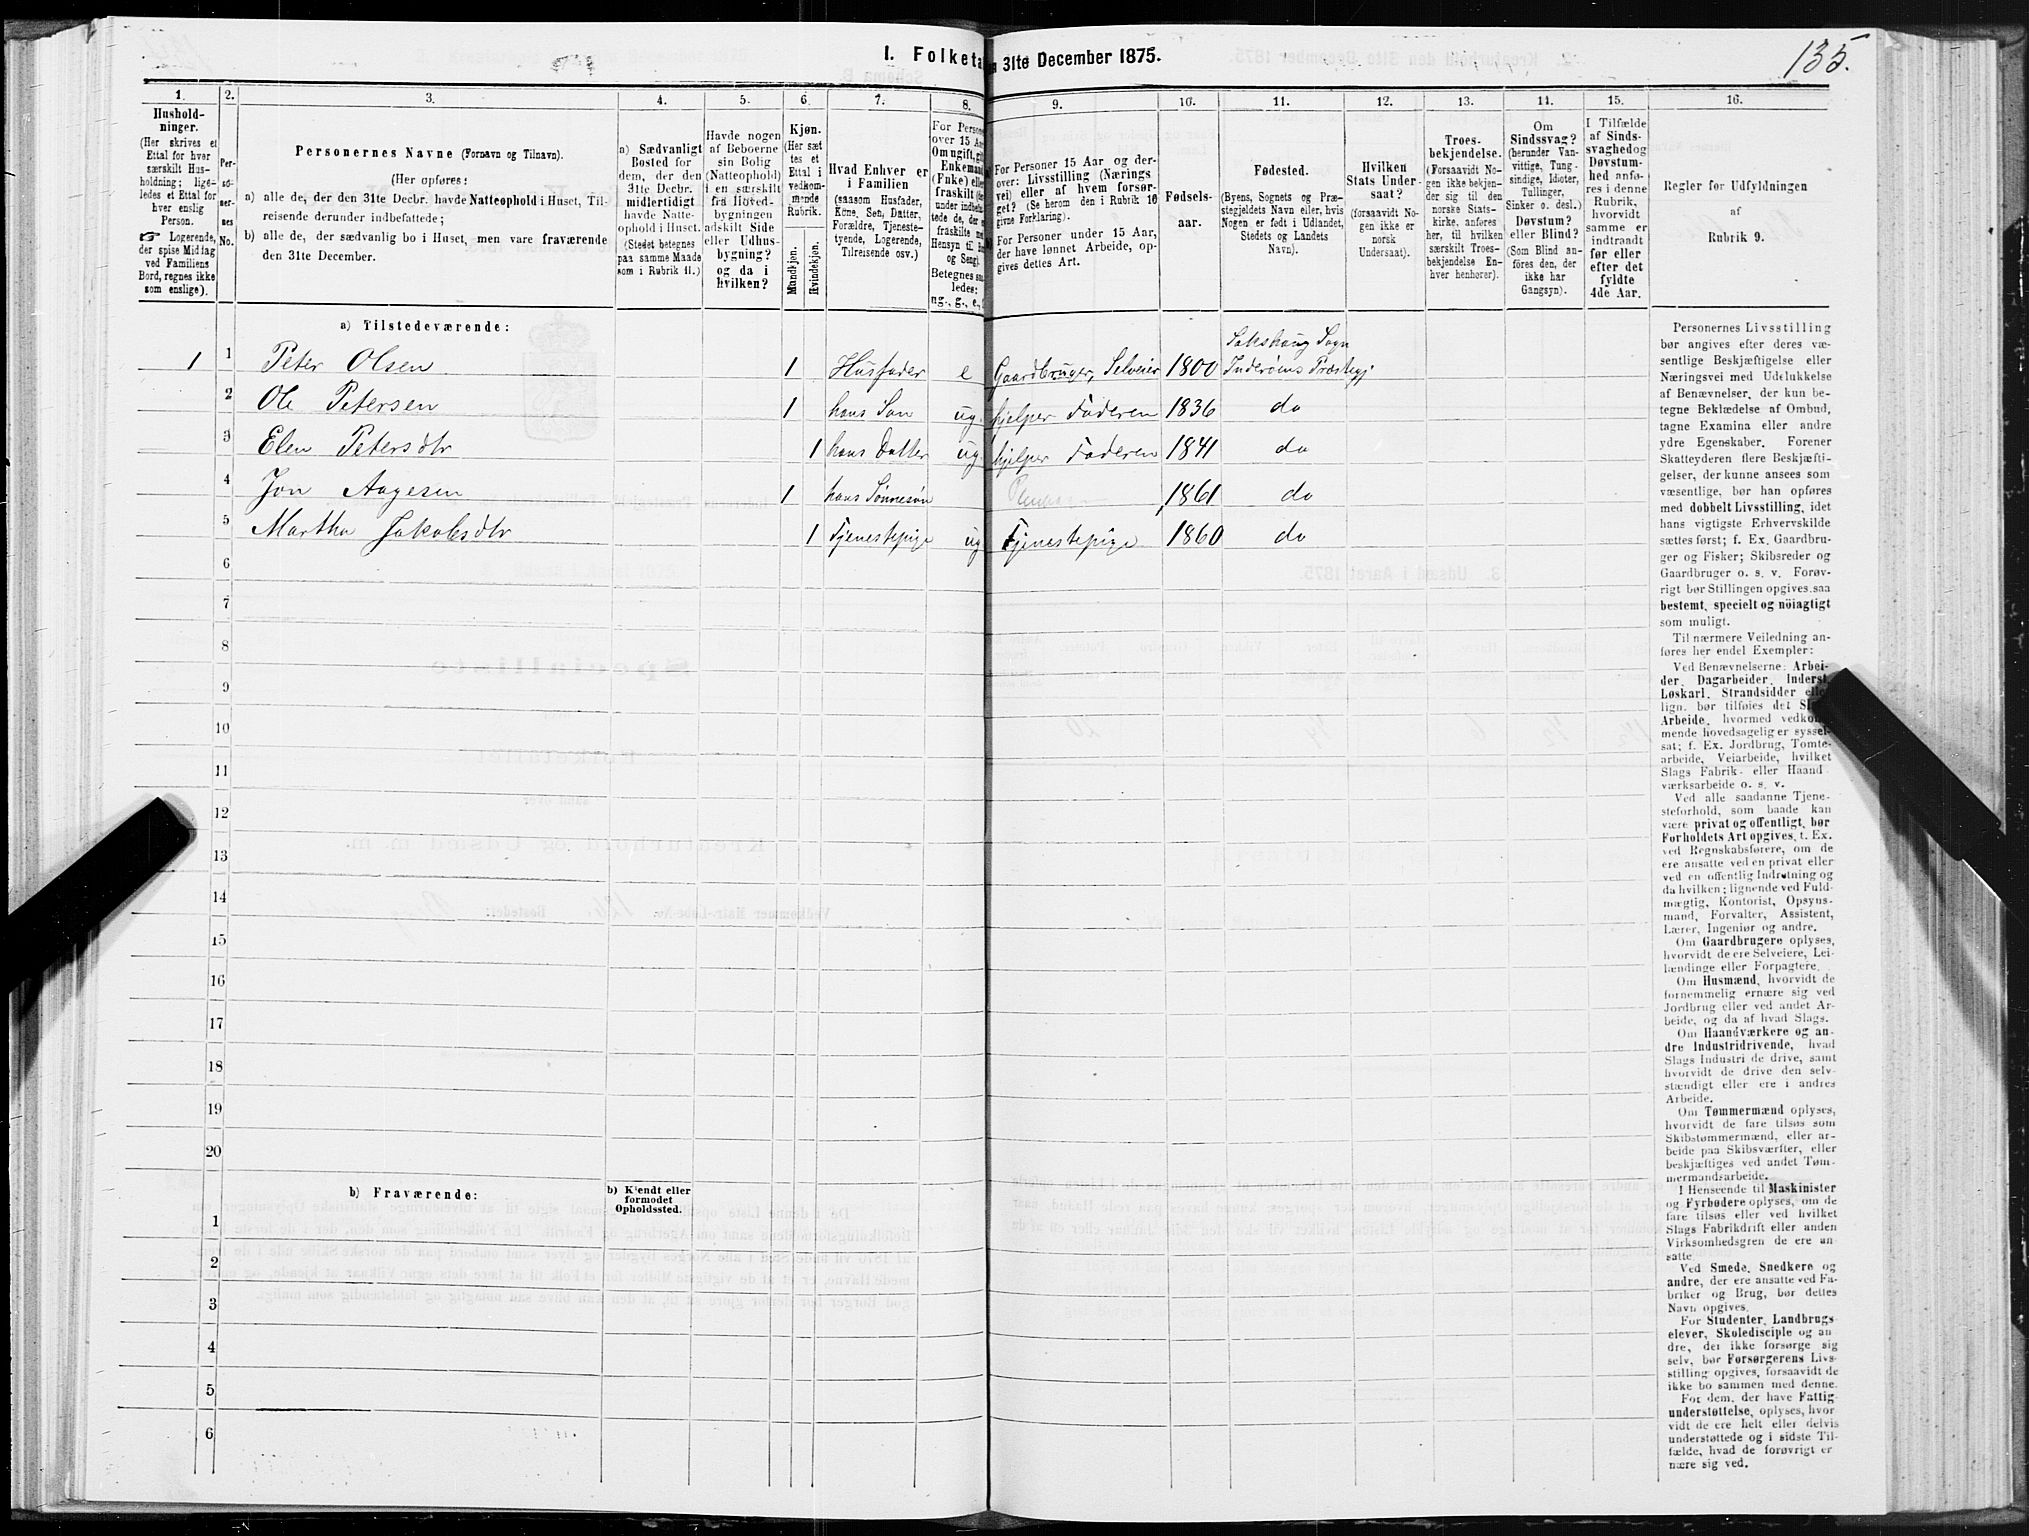 135.
I. Folketa
n 31te December 1875.
1.
2.
3.
4.
5.
6.
7.
8.
9.
10.
11.
12.
13.
14.
15.
16.
Hushold-
ninger.
(Her skrives et
Ettal for hver
særskilt Hus-
holdning; lige-
ledes et Ettal for
hver enslig
Person.
☞ Logerende,
der spise Middag
ved Familiens
Bord, regnes ikke
som enslige).
Per-
so-
ner-
nes
No.
Personernes Navne (Fornavn og Tilnavn).
(Her opføres:
a) alle de, der den 31te Decbr. havde Natteophold i Huset, Til-
reisende derunder indbefattede;
b) alle de, der sædvanlig bo i Huset, men vare fraværende
den 31te December.
a) Sædvanligt
Bosted for
dem, der den
31te Decbr.
midlertidigt
havde Natte-
ophold i Huset.
(Stedet betegnes
paa samme Maade
som i Rubrik 11.)
Havde nogen
af Beboerne
sin Bolig
(Natteophold)
i en særskilt
fra Hoved-
bygningen
adskilt Side
eller Udhus-
bygning?
og da i
hvilken?
Kjøn.
(Her sæt
tes et
Ettal i
vedkom-
mende
Rubrik.
Mandkjøn.
Kvindekjøn.
Hvad Enhver er
i Familien
(saasom Husfader,
Kone, Søn, Datter,
Forældre, Tjeneste-
tyende, Logerende,
Tilreisende osv.)
For Persone
over 15 Aa
Om ugift, gi
Enkemand
(Enke) elle
fraskilt
Betegnes saa
ledes:
ug., g., e.,
For Personer 15 Aar og der-
over: Livsstilling (Nærings
vei) eller af hvem forsør-
get? (Se herom den i Rubrik 16
givne Forklaring).
For Personer under 15 Aar,
der have lønnet Arbeide, op-
gives dettes Art.
Fødsels-
aar.
Fødested.
(Byens, Sognets og Præ-
stegjeldets Navn eller, hvis
Nogen er født i Udlandet,
Stedets og Landets
Navn).
Hvilken
Stats Under-
saat?
(forsaavidt No-
gen ikke er
norsk
Undersaat).
Troes-
bekjendelse.
(Forsaavidt No-
gen ikke bekjen-
der sig til den
norske Stats-
kirke, anføres
her, til hvilken
særskilt Troes-
bekjendelse En-
hver henhører).
Om
Sindssvag?
(herunder Van-
vittige, Tung-
sindige, Idioter,
Tullinger,
Sinker o. desl.)
Døvstum?
eller Blind?
(Som Blind an-
føres den, der
ikke har
Gangsyn).
I Tilfælde
af Sinds-
svaghed og
Døvstum-
hed anfø-
res i denne
Rubrik,
hvorvidt
samme er
indtraadt
før eller
efter det
fyldte
4de Aar.
Regler for Udfyldningen
af
Rubrik 9.
a) Tilstedeværende:
1 1 Peter Olsen 1 Husfader e Gaardbruger, Selveier 1800 Sakshaug Sogn Inderøens Præstegj
2 Ole Petersen 1 hans Søn ug. hjelper Faderen 1836 do
3 Elen Petersdtr 1 hans Datter ug. hjelper Faderen 1841 do
4 Jon Aagesen 1 hans Sønnesøn 1861 do
5 Martha Jakobsdtr 1 Tjenestepige ug Tjenestepige 1860 do
6
7
8
9
10
11
12
13
14
15
16
17
18
19
20
b) Fraværende:
b) Kjendt eller
formodet
Opholdssted.
1
2
3
4
5
6
Personernes Livsstilling
bør angives efter deres væ-
sentlige Beskjæftigelse eller
Næringsvei med Udelukkelse
af Benævnelser, der kun be-
tegne Beklædelse af Ombud,
tagne Examina eller andre
ydre Egenskaber. Forener
Skatteyderen flere Beskjæfti-
gelser, der kunne ansees som
væsentlige, bør han opføres
med dobbelt Livsstilling, idet
hans vigtigste Erhvervskilde
sættes først; f. Ex. Gaardbru-
ger og Fisker; Skibsreder og
Gaardbruger o. s. v. Forøv-
rigt bør Stillingen opgives saa
bestemt, specielt og nöiagtigt
som muligt.
Til nærmere Veiledning an-
føres her endel Exempler:
Ved Benævnelserne: Arbei-
der, Dagarbeider, Inderst,
Løskarl, Strandsidder elle
lign. bør tilføies det Sl
Arbeide, hvormed vedkom-
mende hovedsagelig er syssel-
sat; f. Ex. Jordbrug, Tomte-
arbeide, Veiarbeide, hvilket
Slags Fabrik- eller Haand
værksarbeide o. s. v.
Ved alle saadanne Tjene-
steforhold, som baade kan
være privat og offentligt, bør
Forholdets Art opgives, t. Ex.
ved Regnskabsførere, om de
ere ansatte ved en privat eller
ved en offentlig Indretning og
da hvilken; lignende ved Fuld-
mægtig, Kontorist, Opsyns-
mand, Forvalter, Assistent,
Lærer, Ingeniør og andre.
Om Gaardbrugere oplyses,
hvorvidt de ere Selveiere, Lei-
lændinge eller Forpagtere.
Om Husmænd, hvorvidt de
fornemmelig ernære sig ved
Jordbrug eller ved andet Ar-
beide, og da af hvad Slags.
Om Haandværkere og an-
dre Industridrivende, hvad
Slags Industri de drive, samt
hvorvidt de drive den selv-
stændigt eller ere i andres
Arbeide.
Om Tømmermænd oplyses,
hvorvidt de fare tilsøs som
Skibstømmermænd, eller ar-
beide paa Skibsværfter, eller
beskjæftiges ved andet Tøm-
mermandsarbeide.
I Henseende til Maskinister
og Fyrbødere oplyses, om de
fare tilsøs eller ved hvilket
Slags Fabrikdrift eller anden
Virksomhedsgren de ere an-
satte
Ved Smede, Snedkere og
andre, der ere ansatte ved Fa-
briker og Brug, bør dettes
Navn opgives.
For Studenter, Landbrugs
elever, Skoledisciple og an-
dre, der ikke forsørge sig
selv, bør Forsørgerens Livs-
stilling opgives, forsaavidt de
ikke bo sammen med denne.
For dem, der have Fattig-
understøttelse, oplyses, hvor-
vidt de ere helt eller delvis
understøttede og i sidste Til-
fælde, hvad de forøvrigt er
nære sig ved.